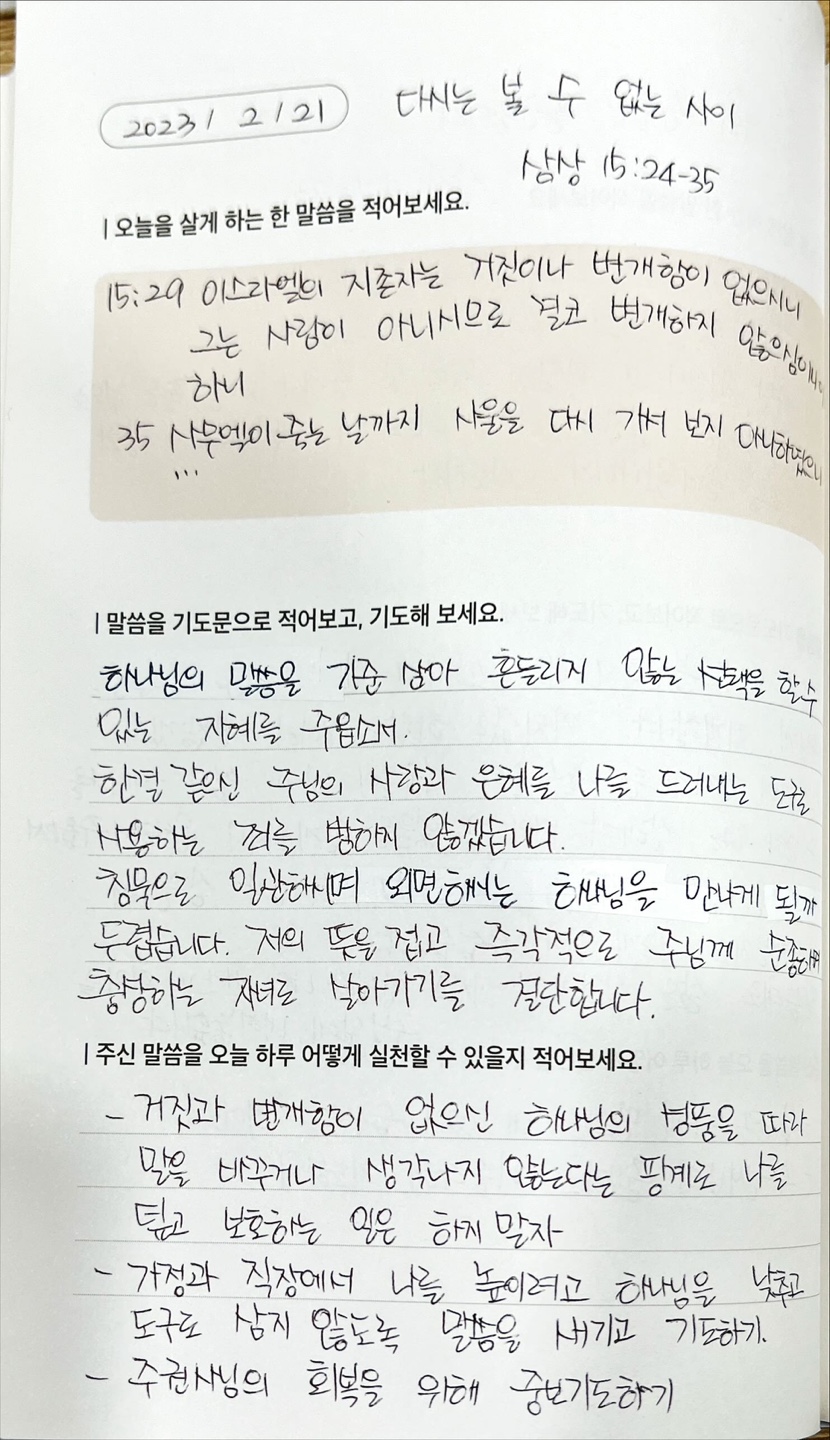 2023 / 2 / 21
다시는 볼 수 없는 사이
삼상 15:24-35
| 오늘을 살게 하는 한 말씀을 적어보세요.
15:29 이스라엘의 지존자는 거짓이나 변개함이 없으시니
그는 사람이 아니시므로 결코 변개하지 않으심이니이
하니
35 사무엘이 죽는 날까지 사울을 다시 가서 보지 아니하였으니
...
| 말씀을 기도문으로 적어보고, 기도해 보세요.
하나님의 말씀을 기준 삼아 흔들리지 않는 선택을 할 수
있는 지혜를 주옵소서.
한결 같으신 주님의 사랑과 은혜를 나를 드러내는 도구로
사용하는 죄를 범하지 않겠습니다.
침묵으로 일관하시며 외면하시는 하나님을 만나게 될까
두렵습니다. 저의 뜻을 접고 즉각적으로 주님께 순종하며
충성하는 자녀로 살아가기를 결단합니다.
| 주신 말씀을 오늘 하루 어떻게 실천할 수 있을지 적어보세요.
- 거짓과 변개함이 없으신 하나님의 성품을 따라
말을 바꾸거나 생각나지 않는다는 핑계로 나를
덮고 보호하는 일은 하지 말자
- 가정과 직장에서 나를 높이려고 하나님을 낮추고
도구로 삼지 않도록 말씀을 새기고 기도하기.
- 주권사님의 회복을 위해 중보기도하기